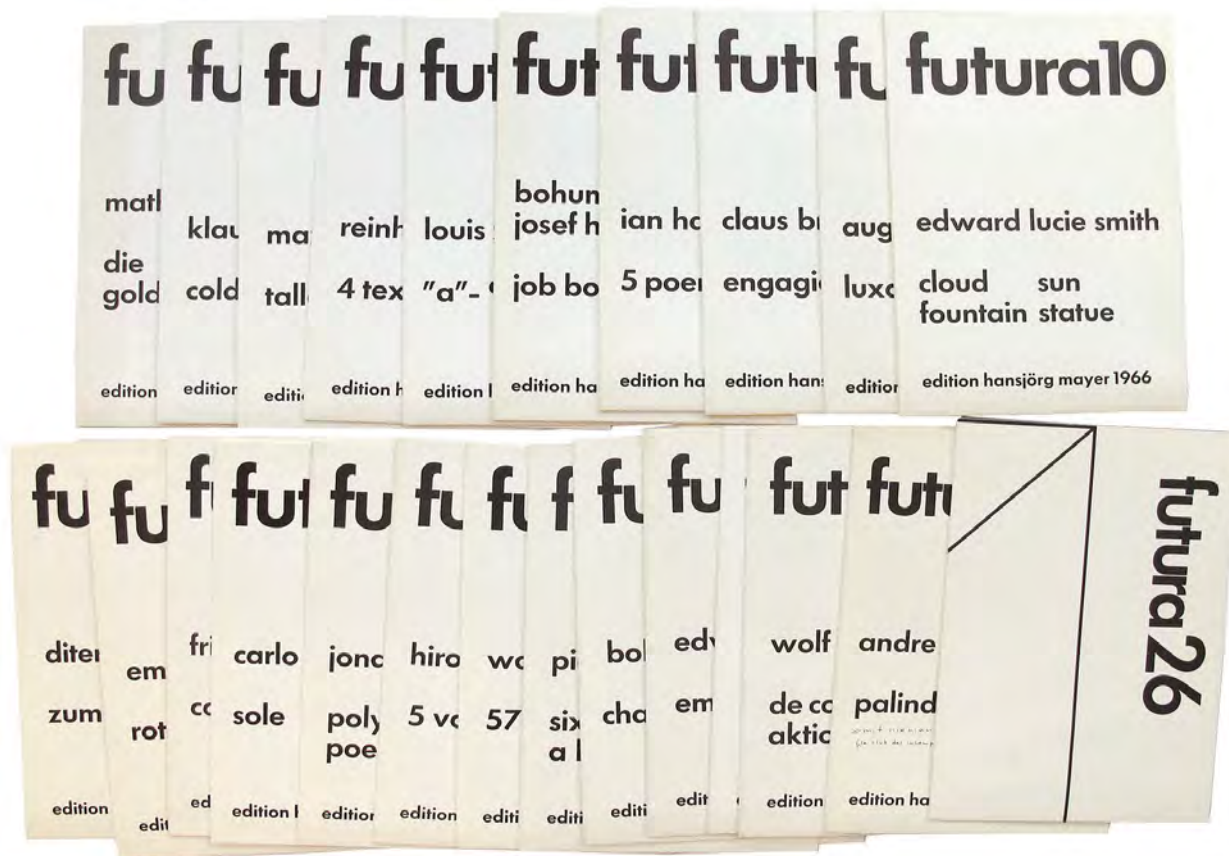 fu
matl
die
gold
edition
fu
klau
cold
edition
fu
ma
tall
editi
fu
reinh
4 tex
edition h
fut
louis
"a"-
edition
fut
bohun
josef h
job bo
edition ha
fut
ian ho
5 poe
edition ha
futu
claus b
engagi
edition han
fu
aug
luxo
edition
futura10
edward lucie smith
cloud sun
fountain statue
edition hansjörg mayer 1966
fu
diter
zum
edition
fu
em
rot
edit
f
fri
co
ed
fut
carlo
sole
edition
fu
jonc
poly
poe
edition
fu
hiro
5 vo
edition
fu
wo
57
editi
f
pi
six
a l
editi
fu
bol
cha
editi
fu
edv
em
edit
fut
wolf
de co
aktio
edition
futu
andre
palind
edition ha
futura26